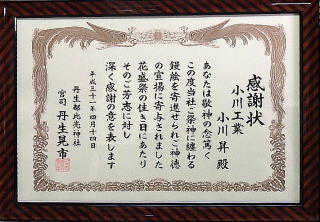 感謝状
小川工業
小川 昇 殿
あなたは敬神の念篤く
この度当社ご祭神に纏わる
鏝絵を寄進せられご神徳
の宣揚に寄与されました
花盛祭の佳き日にあたり
そのご芳志に対し
深く感謝の意を表します
平成三十一年四月十四日
丹生都比売神社
宮司 丹生晃市